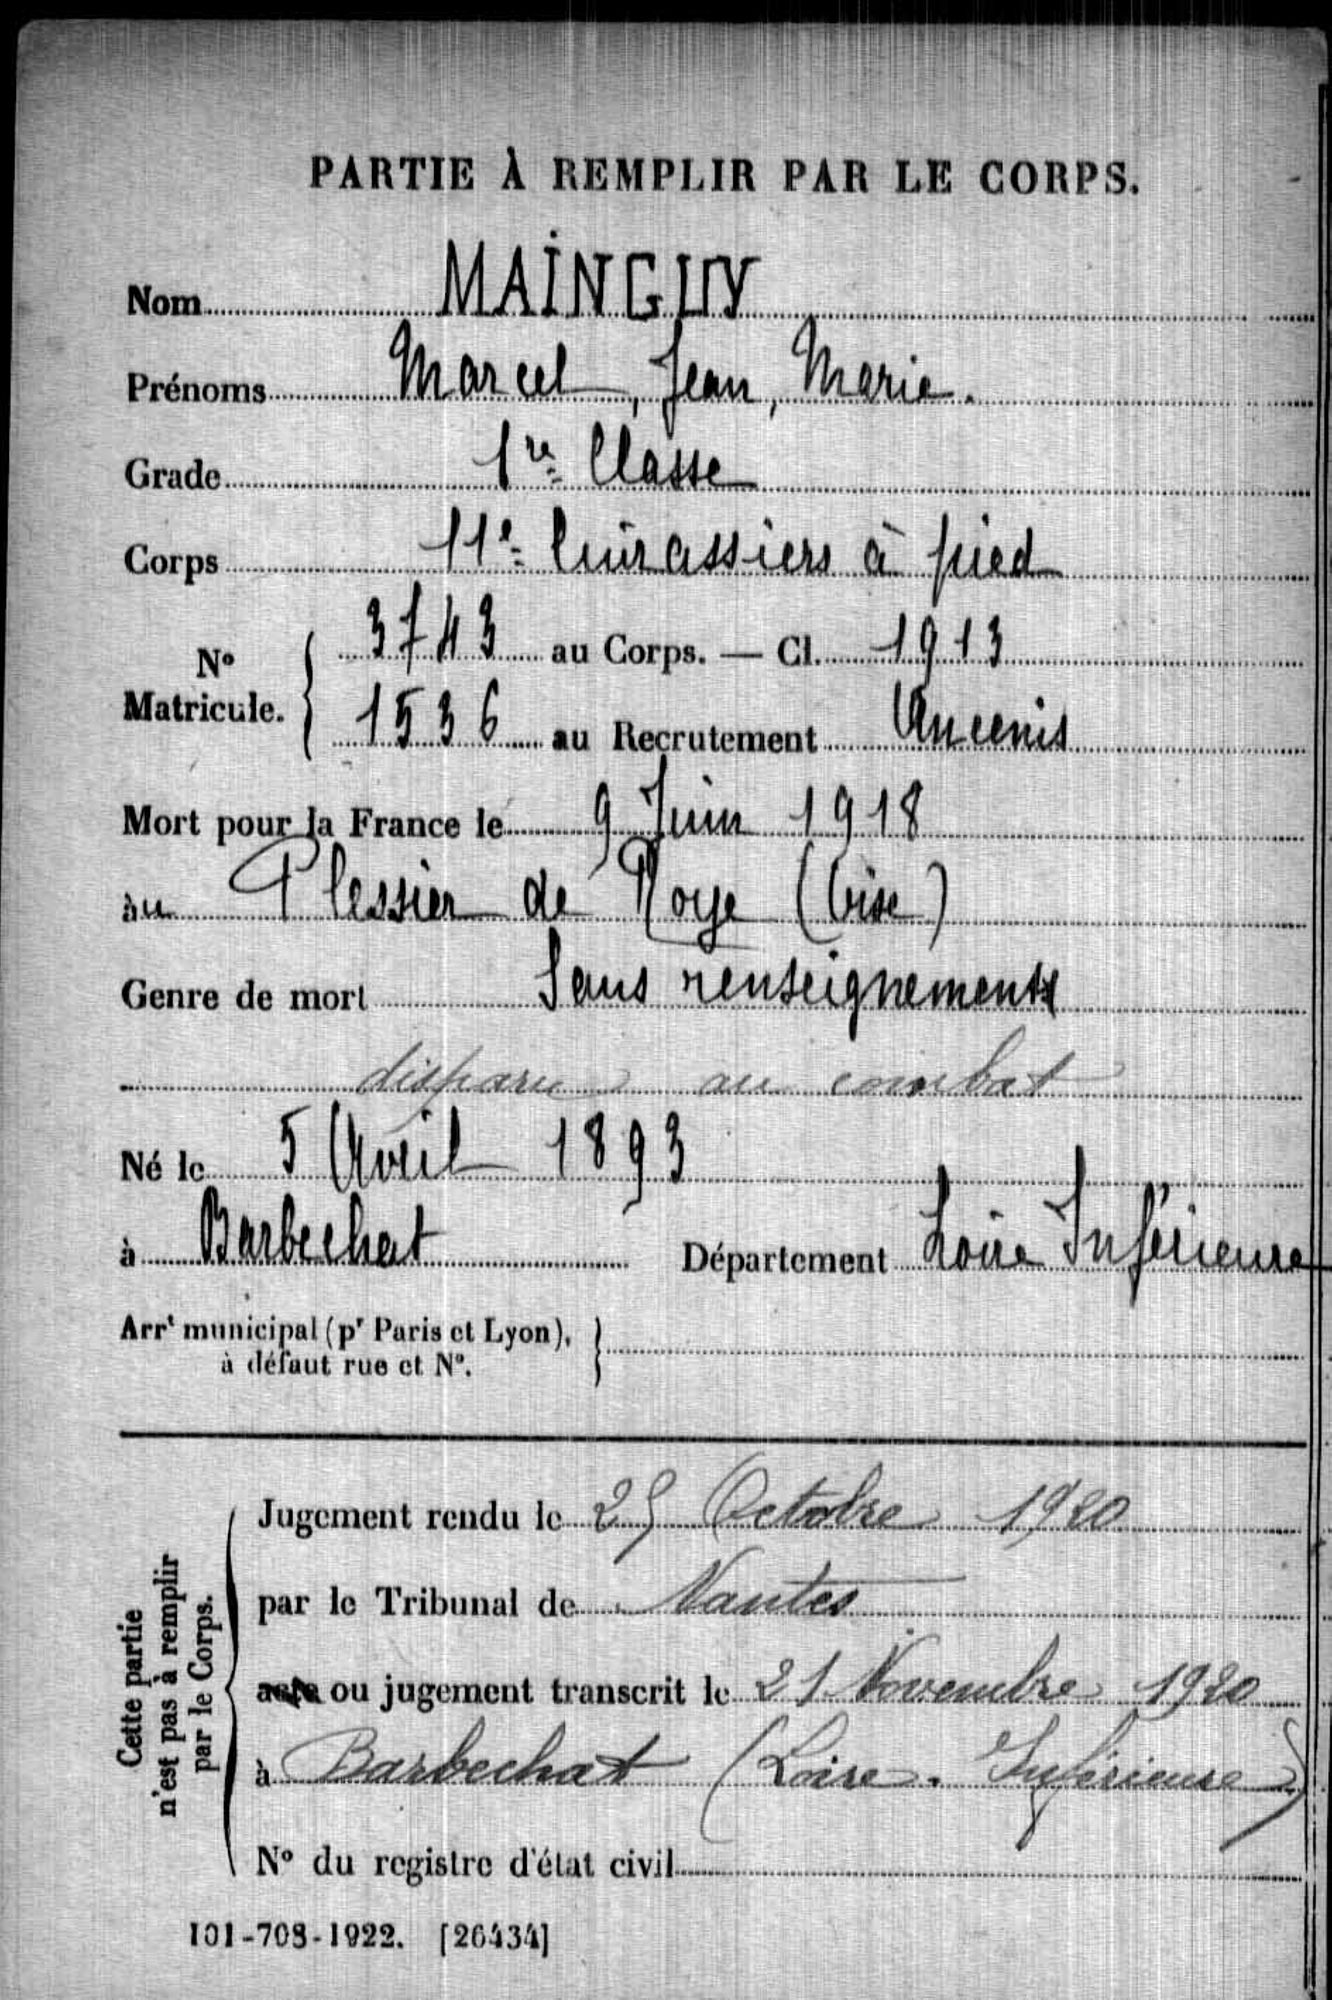 PARTIE À REMPLIR PAR LE CORPS.
Nom MAINGUY
Prénoms Marcel, Jean, Marie.
Grade 1re Classe
Corps 11e Cuirassiers à pied
No Matricule. { 3743 au Corps. — Cl. 1913
1536 au Recrutement Ancenis
Mort pour la France le 9 Juin 1918
au Plessier de Roye (Oise)
Genre de mort Sans renseignements
disparu au combat
Né le 5 Avril 1893
à Barbechat Département Loire Inférieure
Arrt municipal (pr Paris et Lyon), à défaut rue et No. }
Cette partie n'est pas à remplir par le Corps.
Jugement rendu le 25 Octobre 1920
par le Tribunal de Nantes
acte ou jugement transcrit le 21 Novembre 1920
à Barbechat (Loire-Inférieure)
No du registre d'état civil
101-708-1922. [26434]